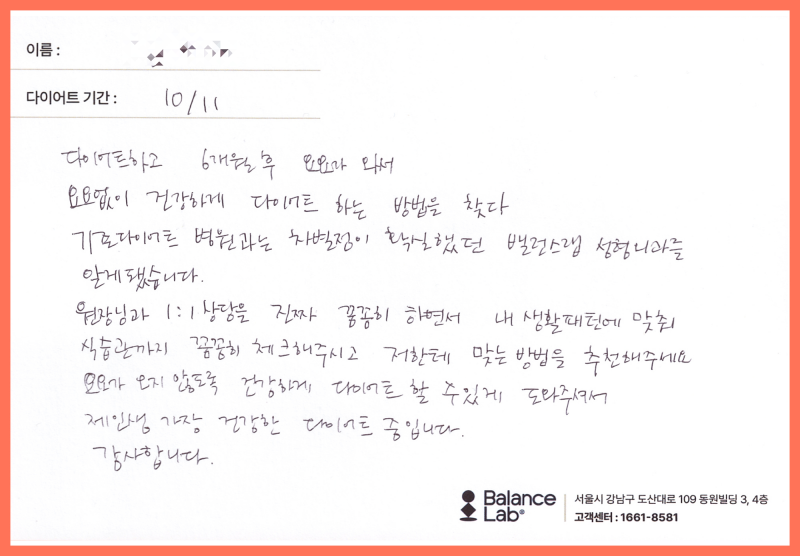 이름 :
다이어트 기간 : 10/11
다이어트하고 6개월 후 요요가 와서
요요없이 건강하게 다이어트 하는 방법을 찾다
기존다이어트 병원과는 차별점이 확실했던 밸런스랩 성형외과를
알게됐습니다.
원장님과 1:1 상담을 진짜 꼼꼼히 하면서 내 생활패턴에 맞춰
식습관까지 꼼꼼히 체크해주시고 저한테 맞는 방법을 추천해주세요
요요가 오지 않도록 건강하게 다이어트 할 수 있게 도와주셔서
제인생 가장 건강한 다이어트 중입니다.
감사합니다.
Balance Lab®
서울시 강남구 도산대로 109 동원빌딩 3, 4층
고객센터 : 1661-8581